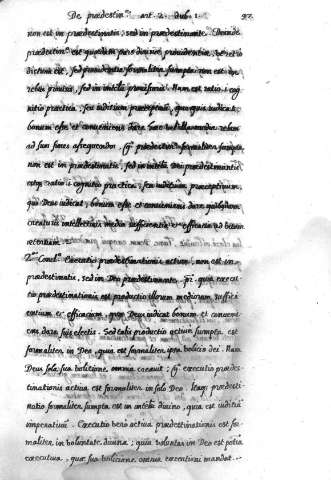 De prædestin.ne art. 2. dub. 1. 97.
non est in prædestinatis, sed in prædestinante. Deinde
prædestin.o est quædam pars divinæ providentiæ, ut
dictum est, sed providentia formaliter sumpta non est in
rebus provisis, sed in intellū provisoris. Nam est ratio, i. cog
nitio practica, seu iudicium præceptivum, quo quis iudicat
bonum esse et conveniens dare hæc media rebus
ad suos fines assequendos. Ergo prædestin.o formaliter sumpta
non est in prædestinatis, sed in intellū Dei prædestinantis
estque ratio i. cognitio practica, seu iudicium præceptivum,
quo Deus iudicat, bonum esse et conveniens dare quibusdam
creaturis intellectivis media sufficientia et efficacia ad
2.a Concl.o Executio prædestinationis activa, non est in
prædestinatis, sed in Deo prædestinante. Pr. quia execu
tio prædestinationis est productio illorum mediorum suffici
entium et efficacium, quæ Deus iudicat bonum et conveni
ens dare suis electis. Sed talis productio activè sumpta est
formaliter in Deo, quia est formaliter ipsa volitio dei. Nam
Deus sola sua volitione omnia creavit; Ergo executio prædes
tinationis activa est formaliter in solo Deo. Itaque prædesti
natio formaliter sumpta est in intellū divino, quia est iudicium
imperativum. Executio vero activa prædestinationis est for
maliter in voluntate divina; quia voluntas in Deo est potia
executiva, quæ sua volitione omnia executioni mandat.